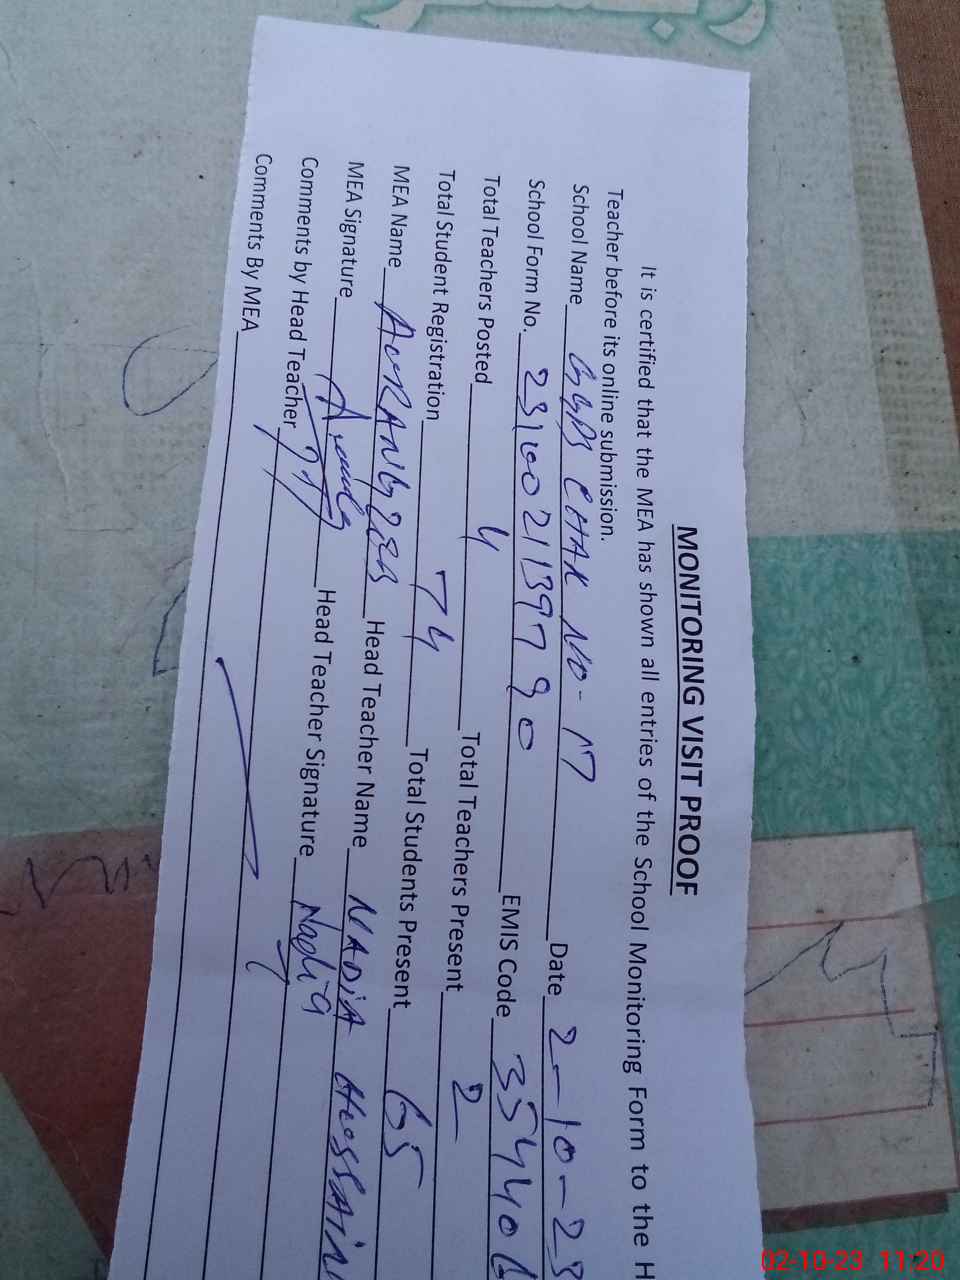 MONITORING VISIT PROOF
It is certified that the MEA has shown all entries of the School Monitoring Form to the H
Teacher before its online submission.
School Name GGPS CHAK NO-17 Date 2-10-23
School Form No. 23100211397 90 EMIS Code 354406
Total Teachers Posted 4 Total Teachers Present 2
Total Student Registration 74 Total Students Present 65
MEA Name AURANGZEB Head Teacher Name NADIA HUSSAIN
MEA Signature Head Teacher Signature Nadia
Comments by Head Teacher
Comments By MEA
02-10-23 11:20